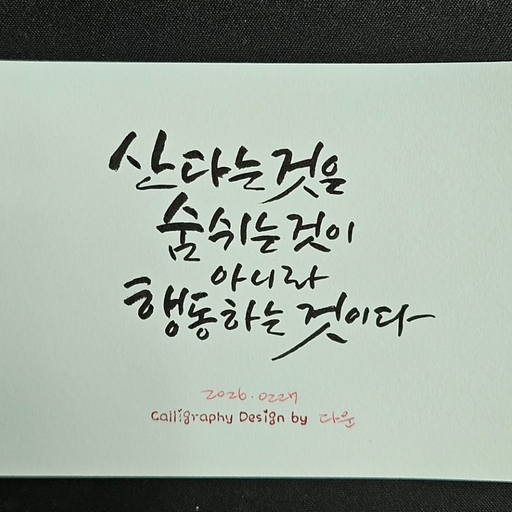 산다는 것은
숨쉬는 것이
아니라
행동하는 것이다
Calligraphy Design by 다운